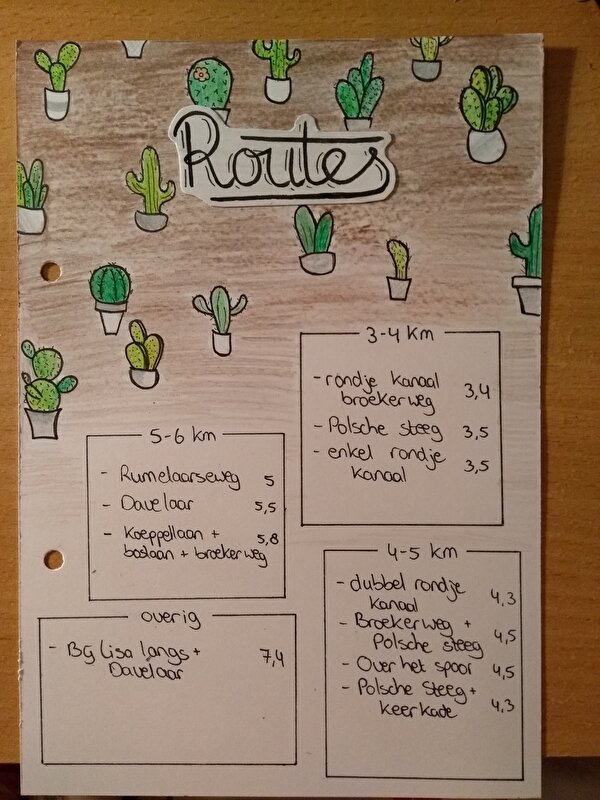 Routes
3-4 km
- rondje kanaal
broekerweg 3,4
- Polsche steeg 3,5
- enkel rondje
kanaal 3,5
5-6 km
- Rumelaarseweg 5
- Davelaar 5,5
- Koeppellaan +
boslaan + broekerweg 5,8
4-5 km
- dubbel rondje
kanaal 4,3
- Broekerweg +
Polsche steeg 4,5
- Over het spoor 4,5
- Polsche Steeg +
keerkade 4,3
overig
- Bij Lisa langs + 7,4
Davelaar